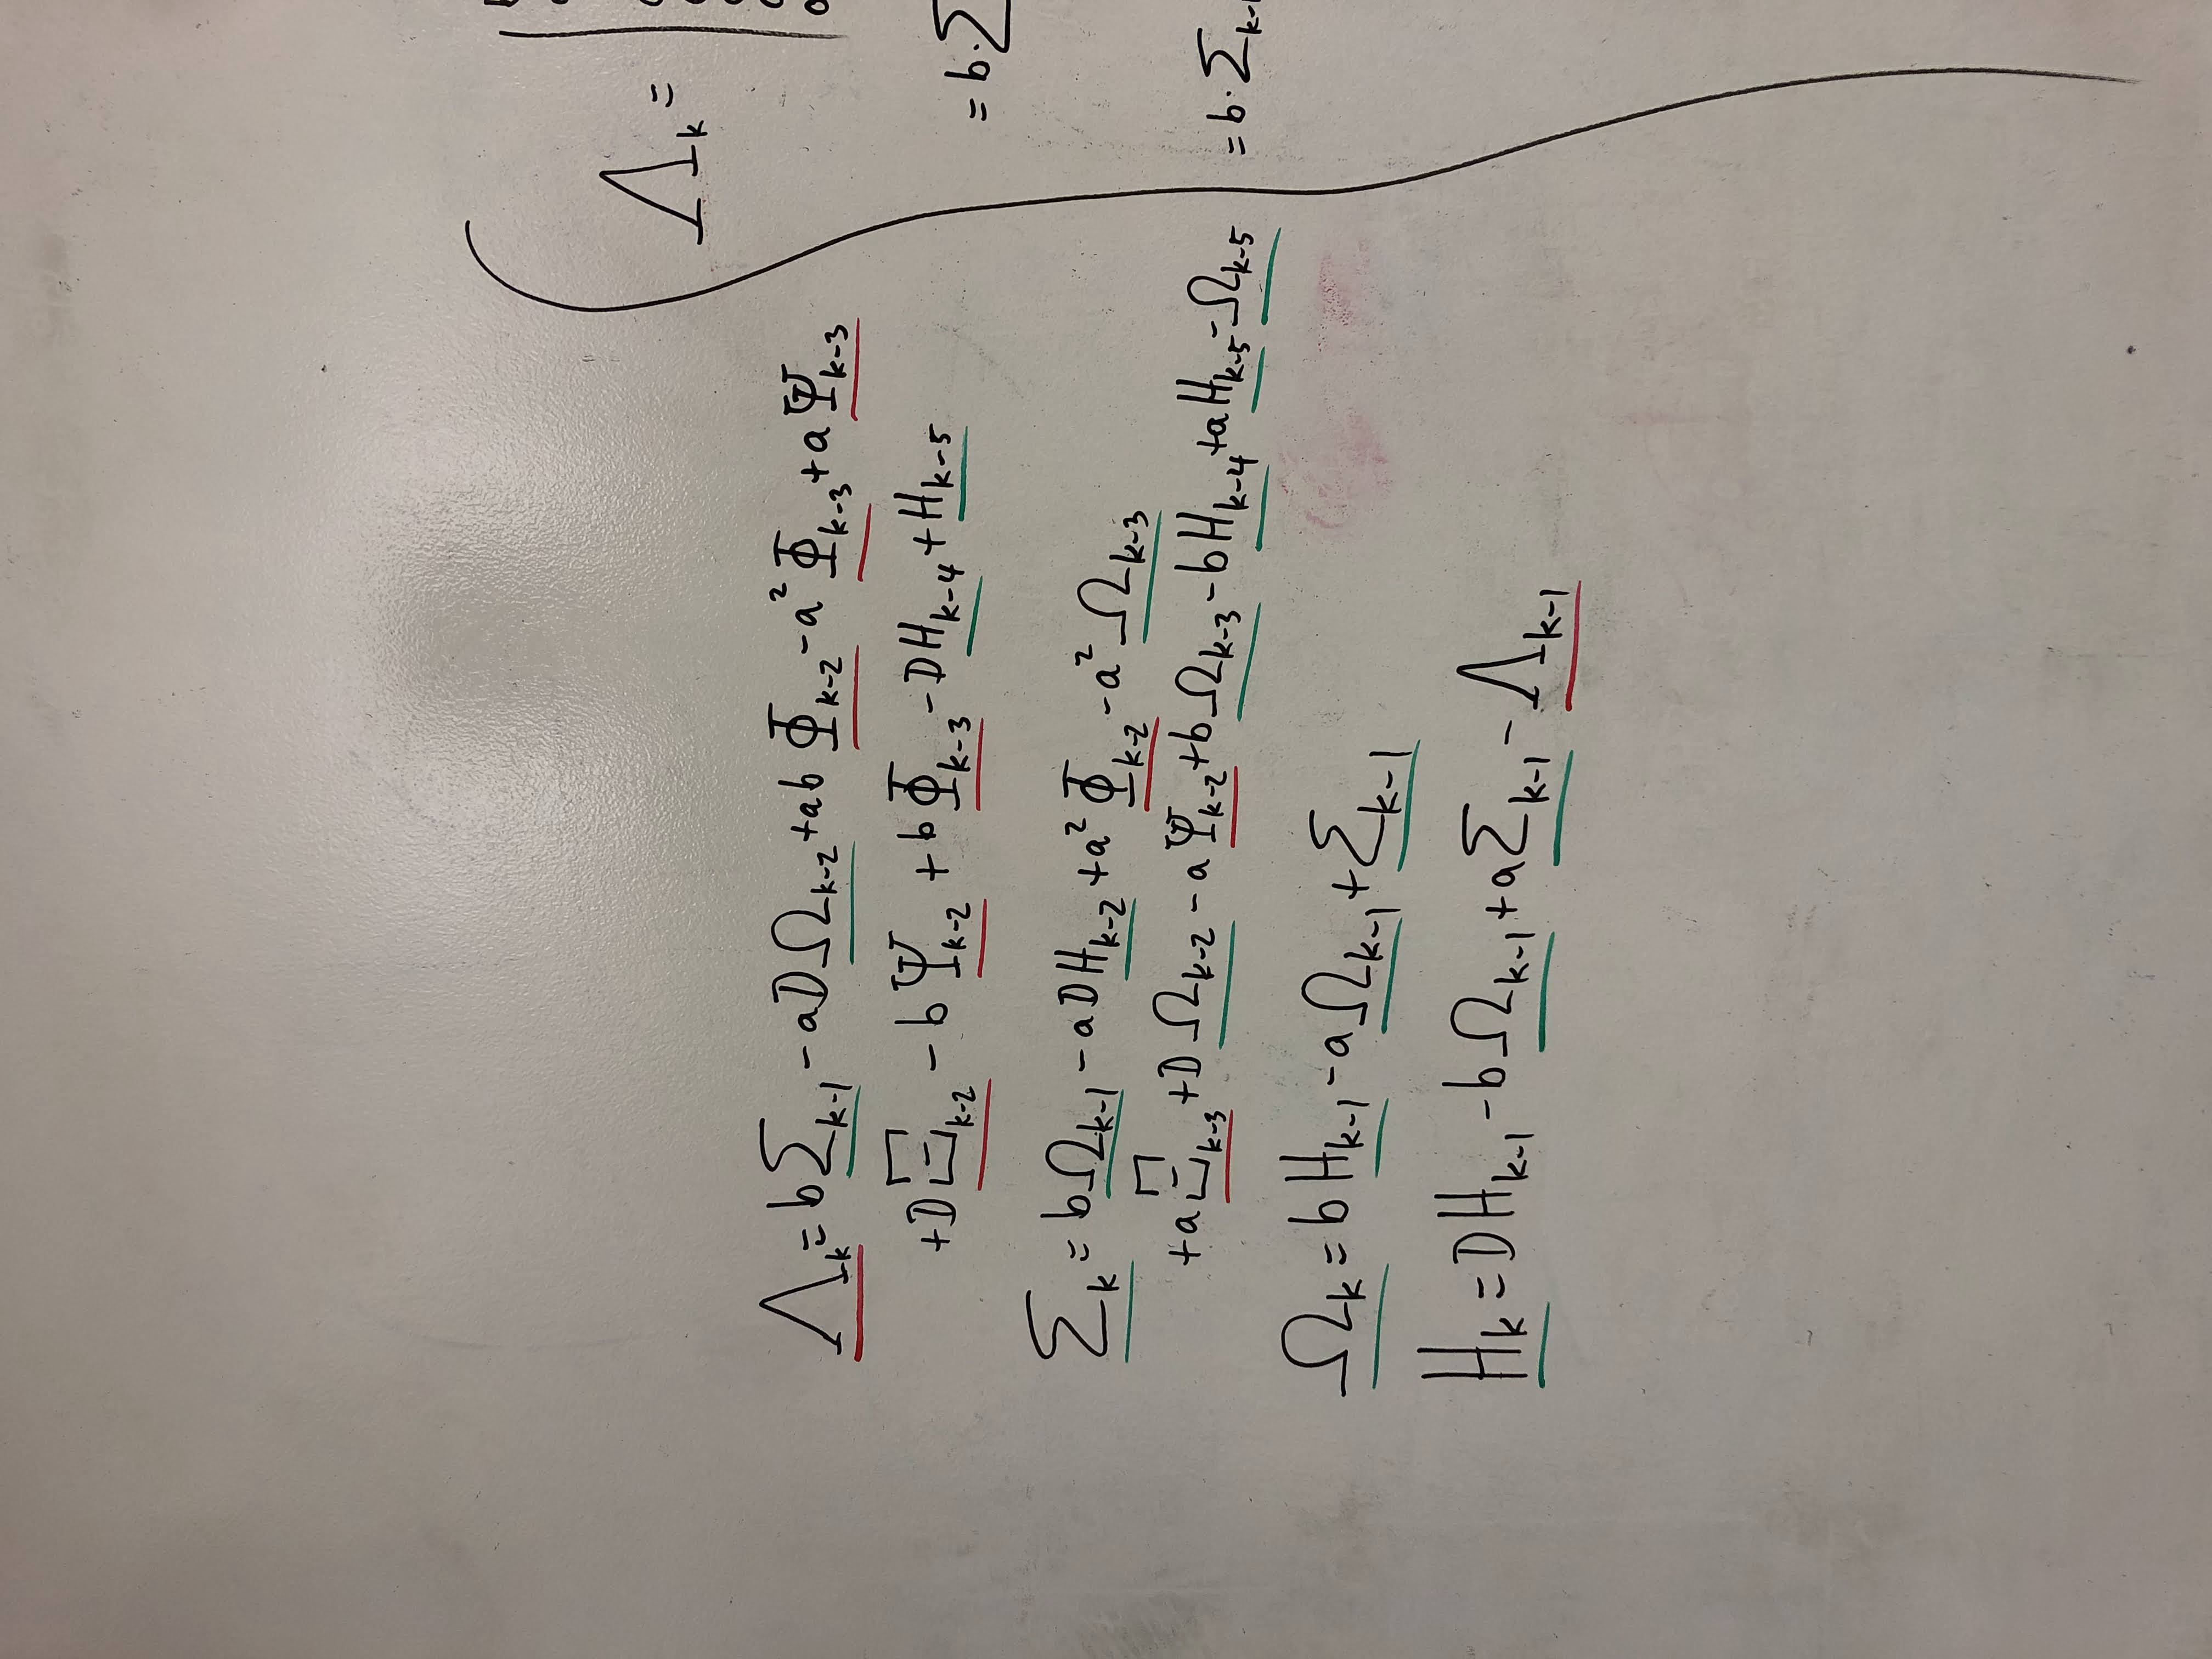 Λₖ = bΣₖ₋₁ - aDΩₖ₋₂ + abΦₖ₋₂ - a²Φₖ₋₃ + aΨₖ₋₃
+ DΞₖ₋₂ - bΨₖ₋₂ + bΦₖ₋₃ - DHₖ₋₄ + Hₖ₋₅
Σₖ = bΩₖ₋₁ - aDHₖ₋₂ + a²Φₖ₋₂ - a²Ωₖ₋₃
+ aΞₖ₋₃ + DΩₖ₋₂ - aΨₖ₋₂ + bΩₖ₋₃ - bHₖ₋₄ + aHₖ₋₅ - Ωₖ₋₅
Ωₖ = bHₖ₋₁ - aΩₖ₋₁ + Σₖ₋₁
Hₖ = DHₖ₋₁ - bΩₖ₋₁ + aΣₖ₋₁ - Λₖ₋₁
Λₖ =
= b·Σ
= b·Σₖ₋